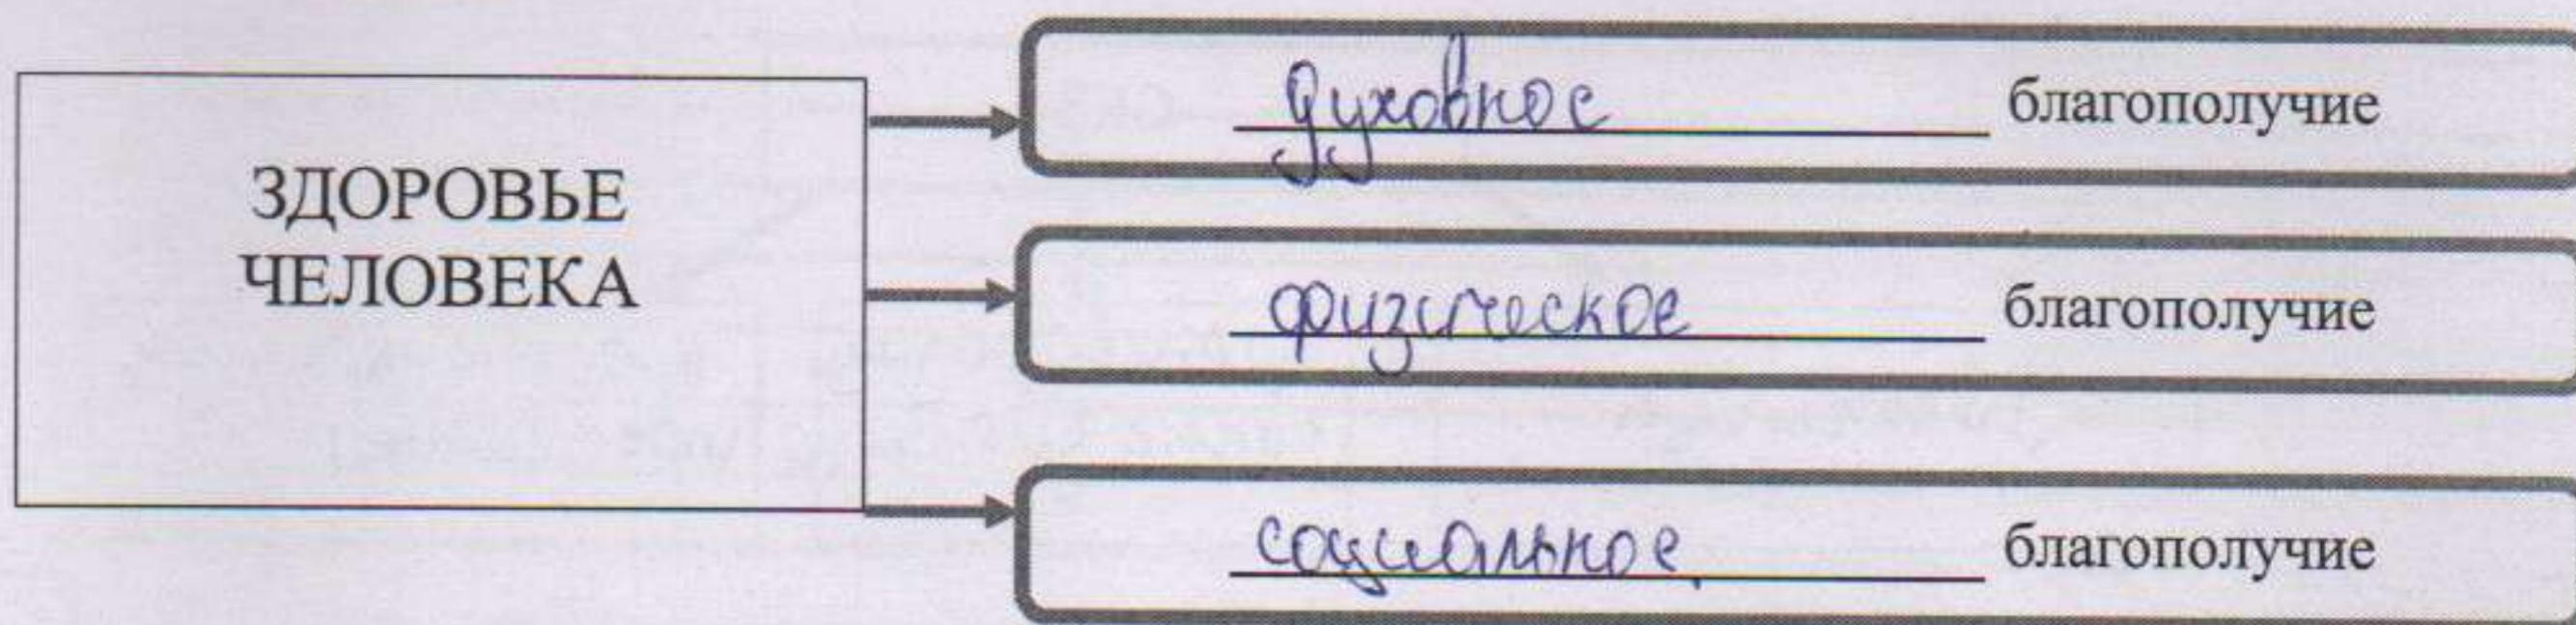 ЗДОРОВЬЕ
ЧЕЛОВЕКА
духовное благополучие
физическое благополучие
социальное благополучие